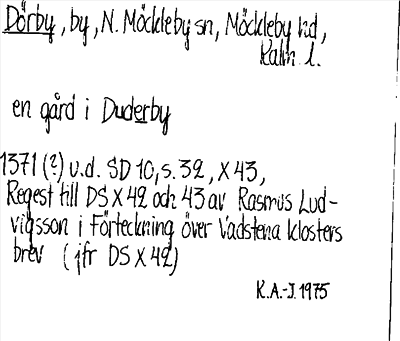 Dörby, by, N. Möckleby sn, Möckleby hd,
Kalm l.
en gård i Duderby
1371 (?) u.d. SD 10, s. 32, X 43,
Regest till DS X 42 och 43 av Rasmus Lud-
vigsson i Förteckning över Vadstena klosters
brev (jfr DS X 42)
K.A.-J. 1975